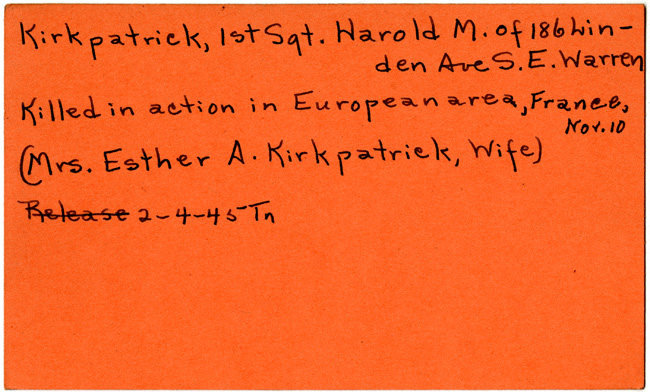 Kirkpatrick, 1st Sgt. Harold M. of 186 Lin-
den Ave S.E. Warren
Killed in action in European area, France,
Nov. 10
(Mrs. Esther A. Kirkpatrick, Wife)
Release 2-4-45 Tn